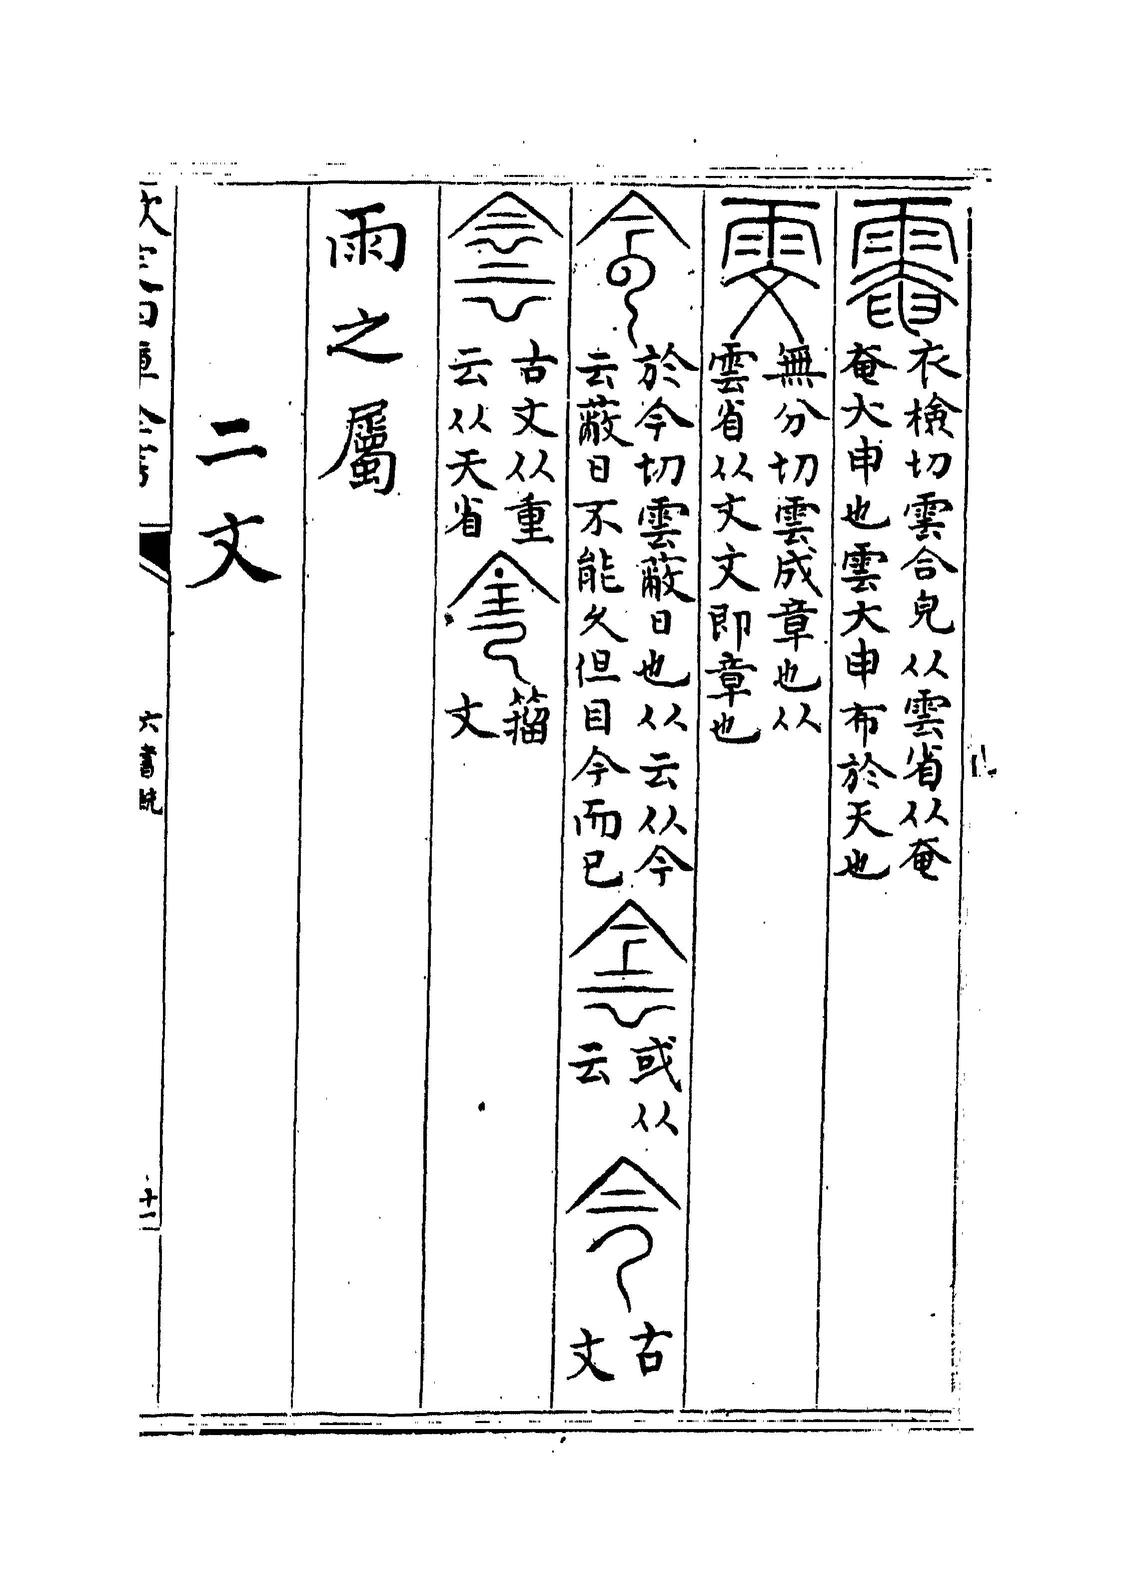 衣檢切雲合皃从雲省从奄
奄大申也雲大申布於天也
無分切雲成章也从
雲省从文文即章也
於今切雲蔽日也从云从今
云蔽日不能久但目今而已
或从
云
古
文
古文从重
云从天省
籀
文
雨之屬
二文
欽定四庫全書
六書統
十一